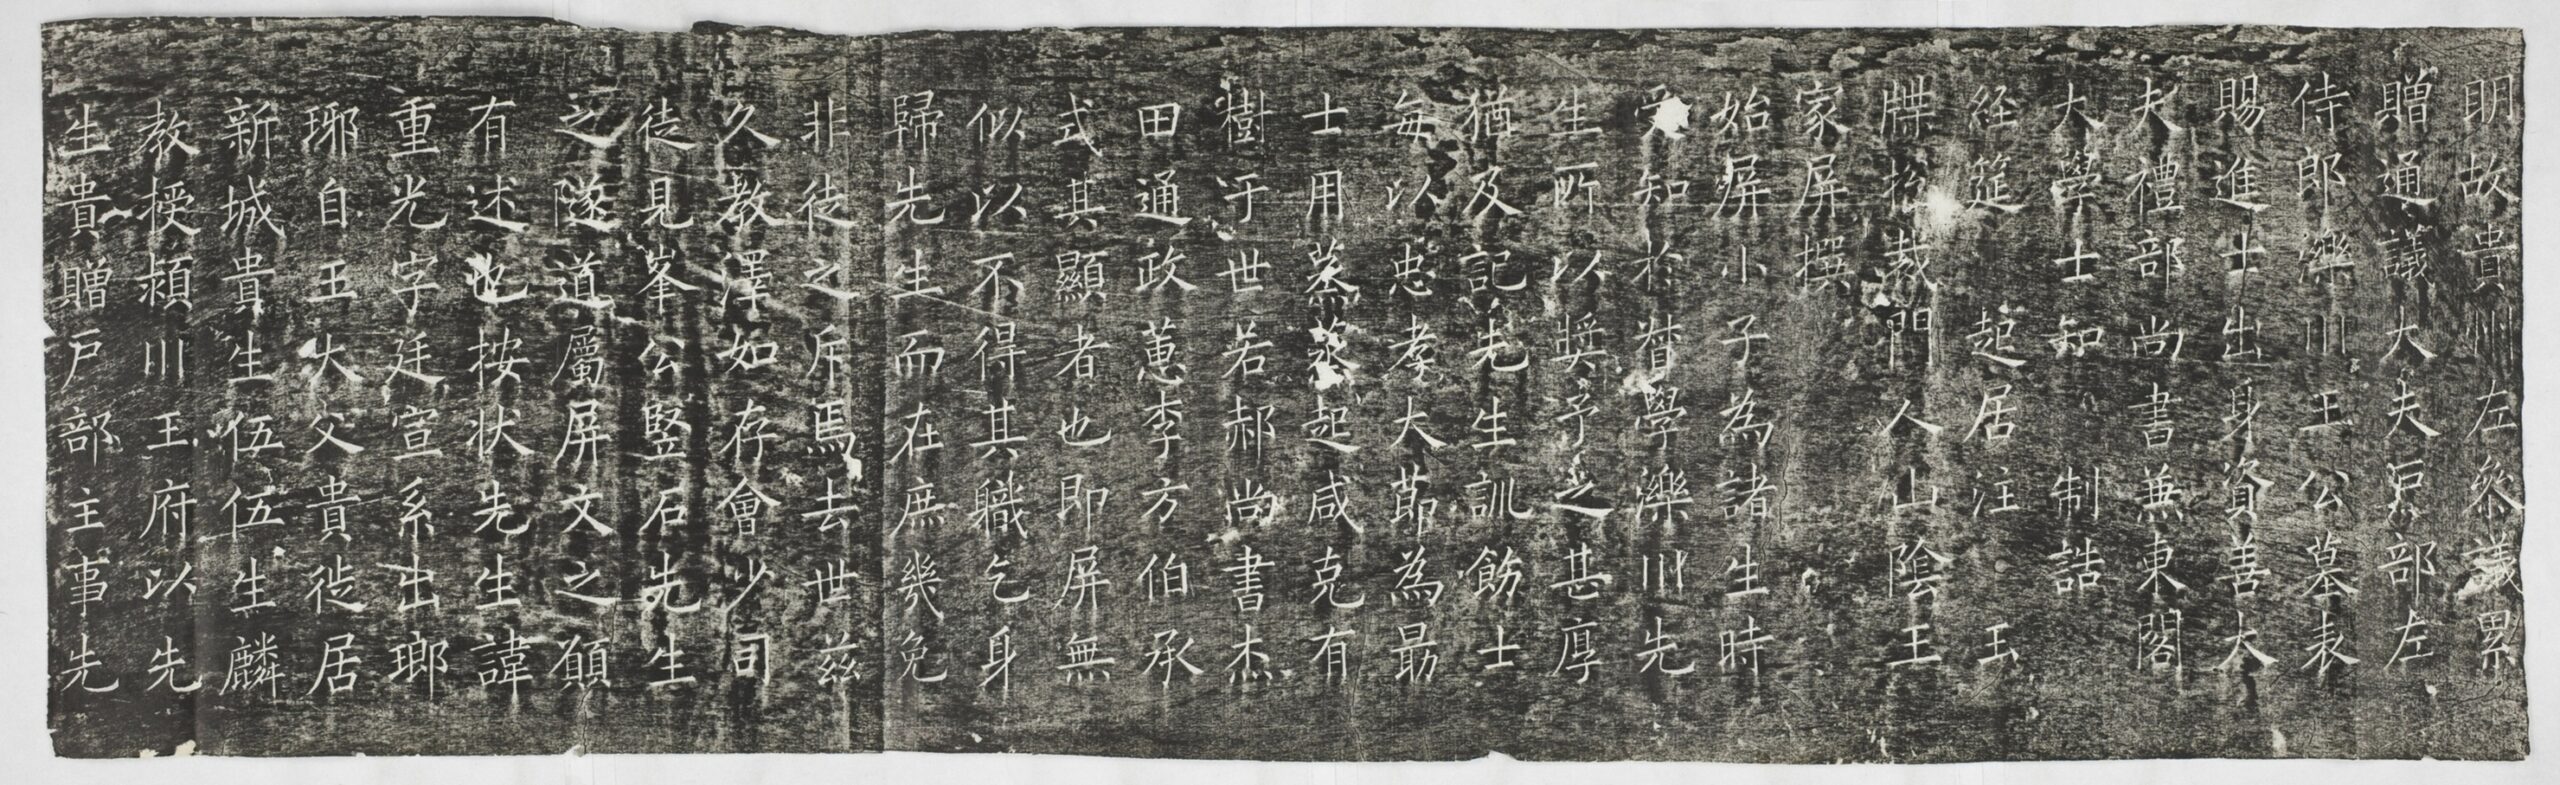 明故貴州左叅議累
贈通議大夫戶部左
侍郎濼川王公墓表
賜進士出身資善大
夫禮部尚書兼東閣
大學士知 制誥
經筵 起居注 玉
牒 裁門人山陰王
家屏撰
始屏小子為諸生時
受知於督學濼川先
生所以奬予之甚厚
猶及記先生訓飭士
每以忠孝大節為最
士用蒸蒸起咸克有
樹于世若郝尚書杰
田通政蕙李方伯承
式其顯者也即屏無
似以不得其職乞身
歸先生而在庶幾免
非徒之斥焉去世茲
久教澤如存會少司
徒見峯公竪石先生
之隧道屬屏文之願
有述也按狀先生諱
重光字廷宣系出瑯
琊自王大父貴徙居
新城貴生伍伍生麟
教授潁川王府以先
生貴贈戶部主事先